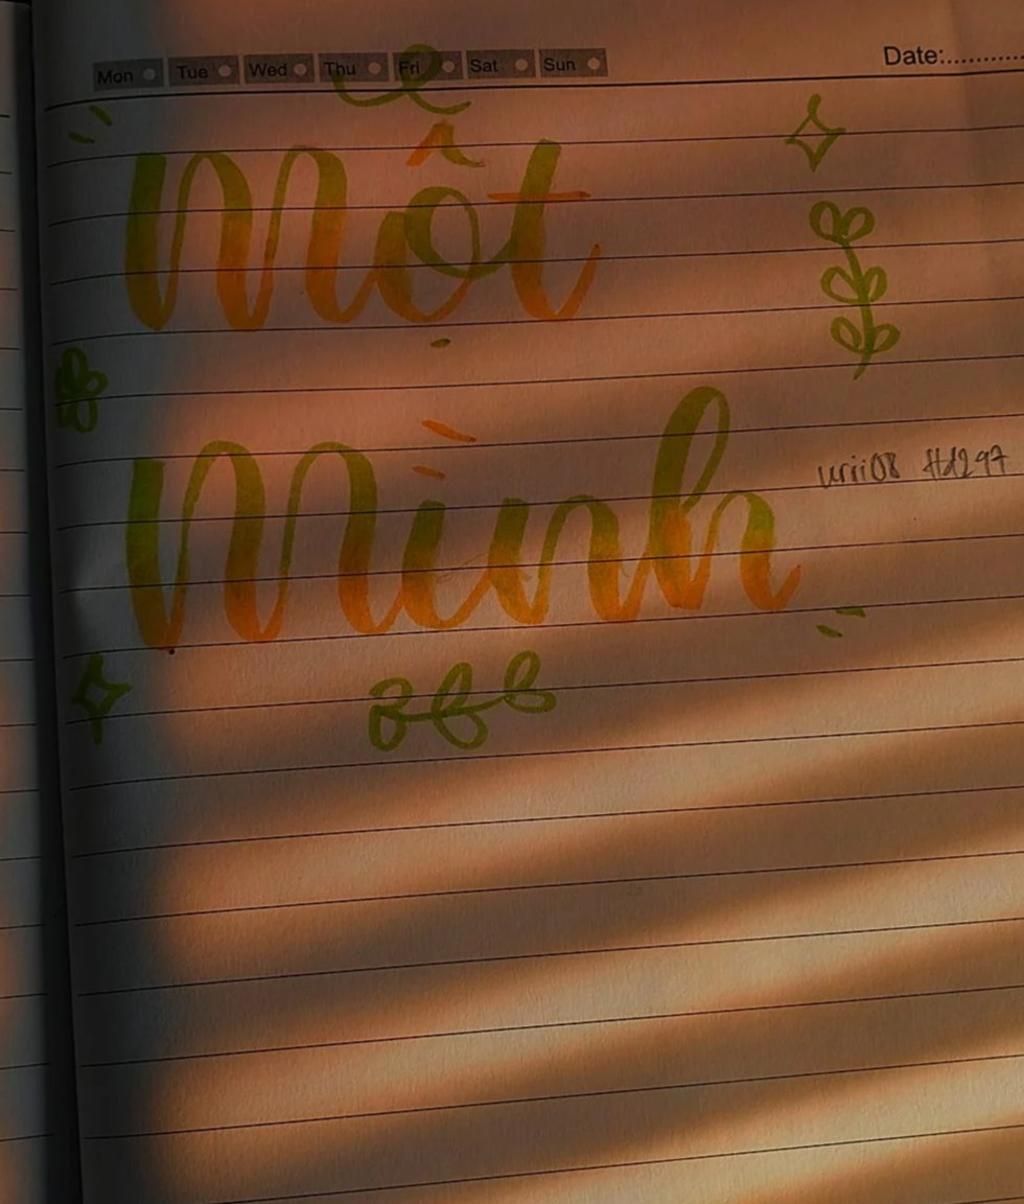 Mon Tue Wed Thu Fri Sat Sun
Date:............
Một
Mình
urii08 #d297